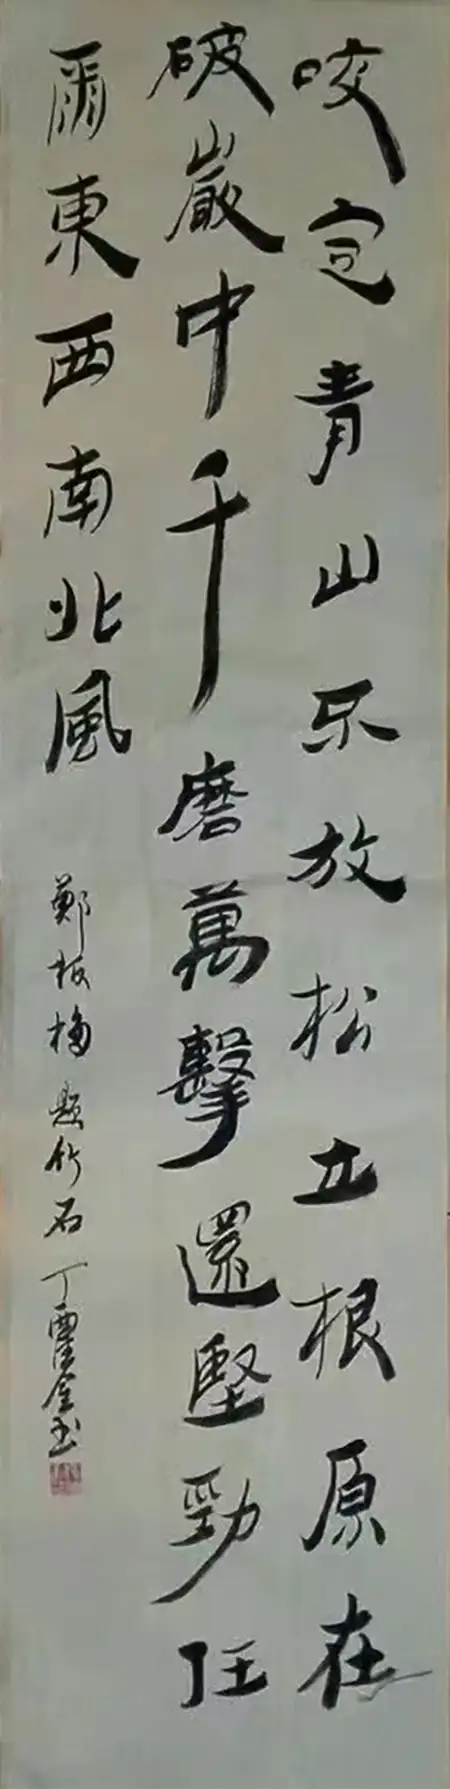 咬定青山不放松立根原在
破巖中千磨萬擊還堅勁任
爾東西南北風
鄭板橋題竹石丁金書